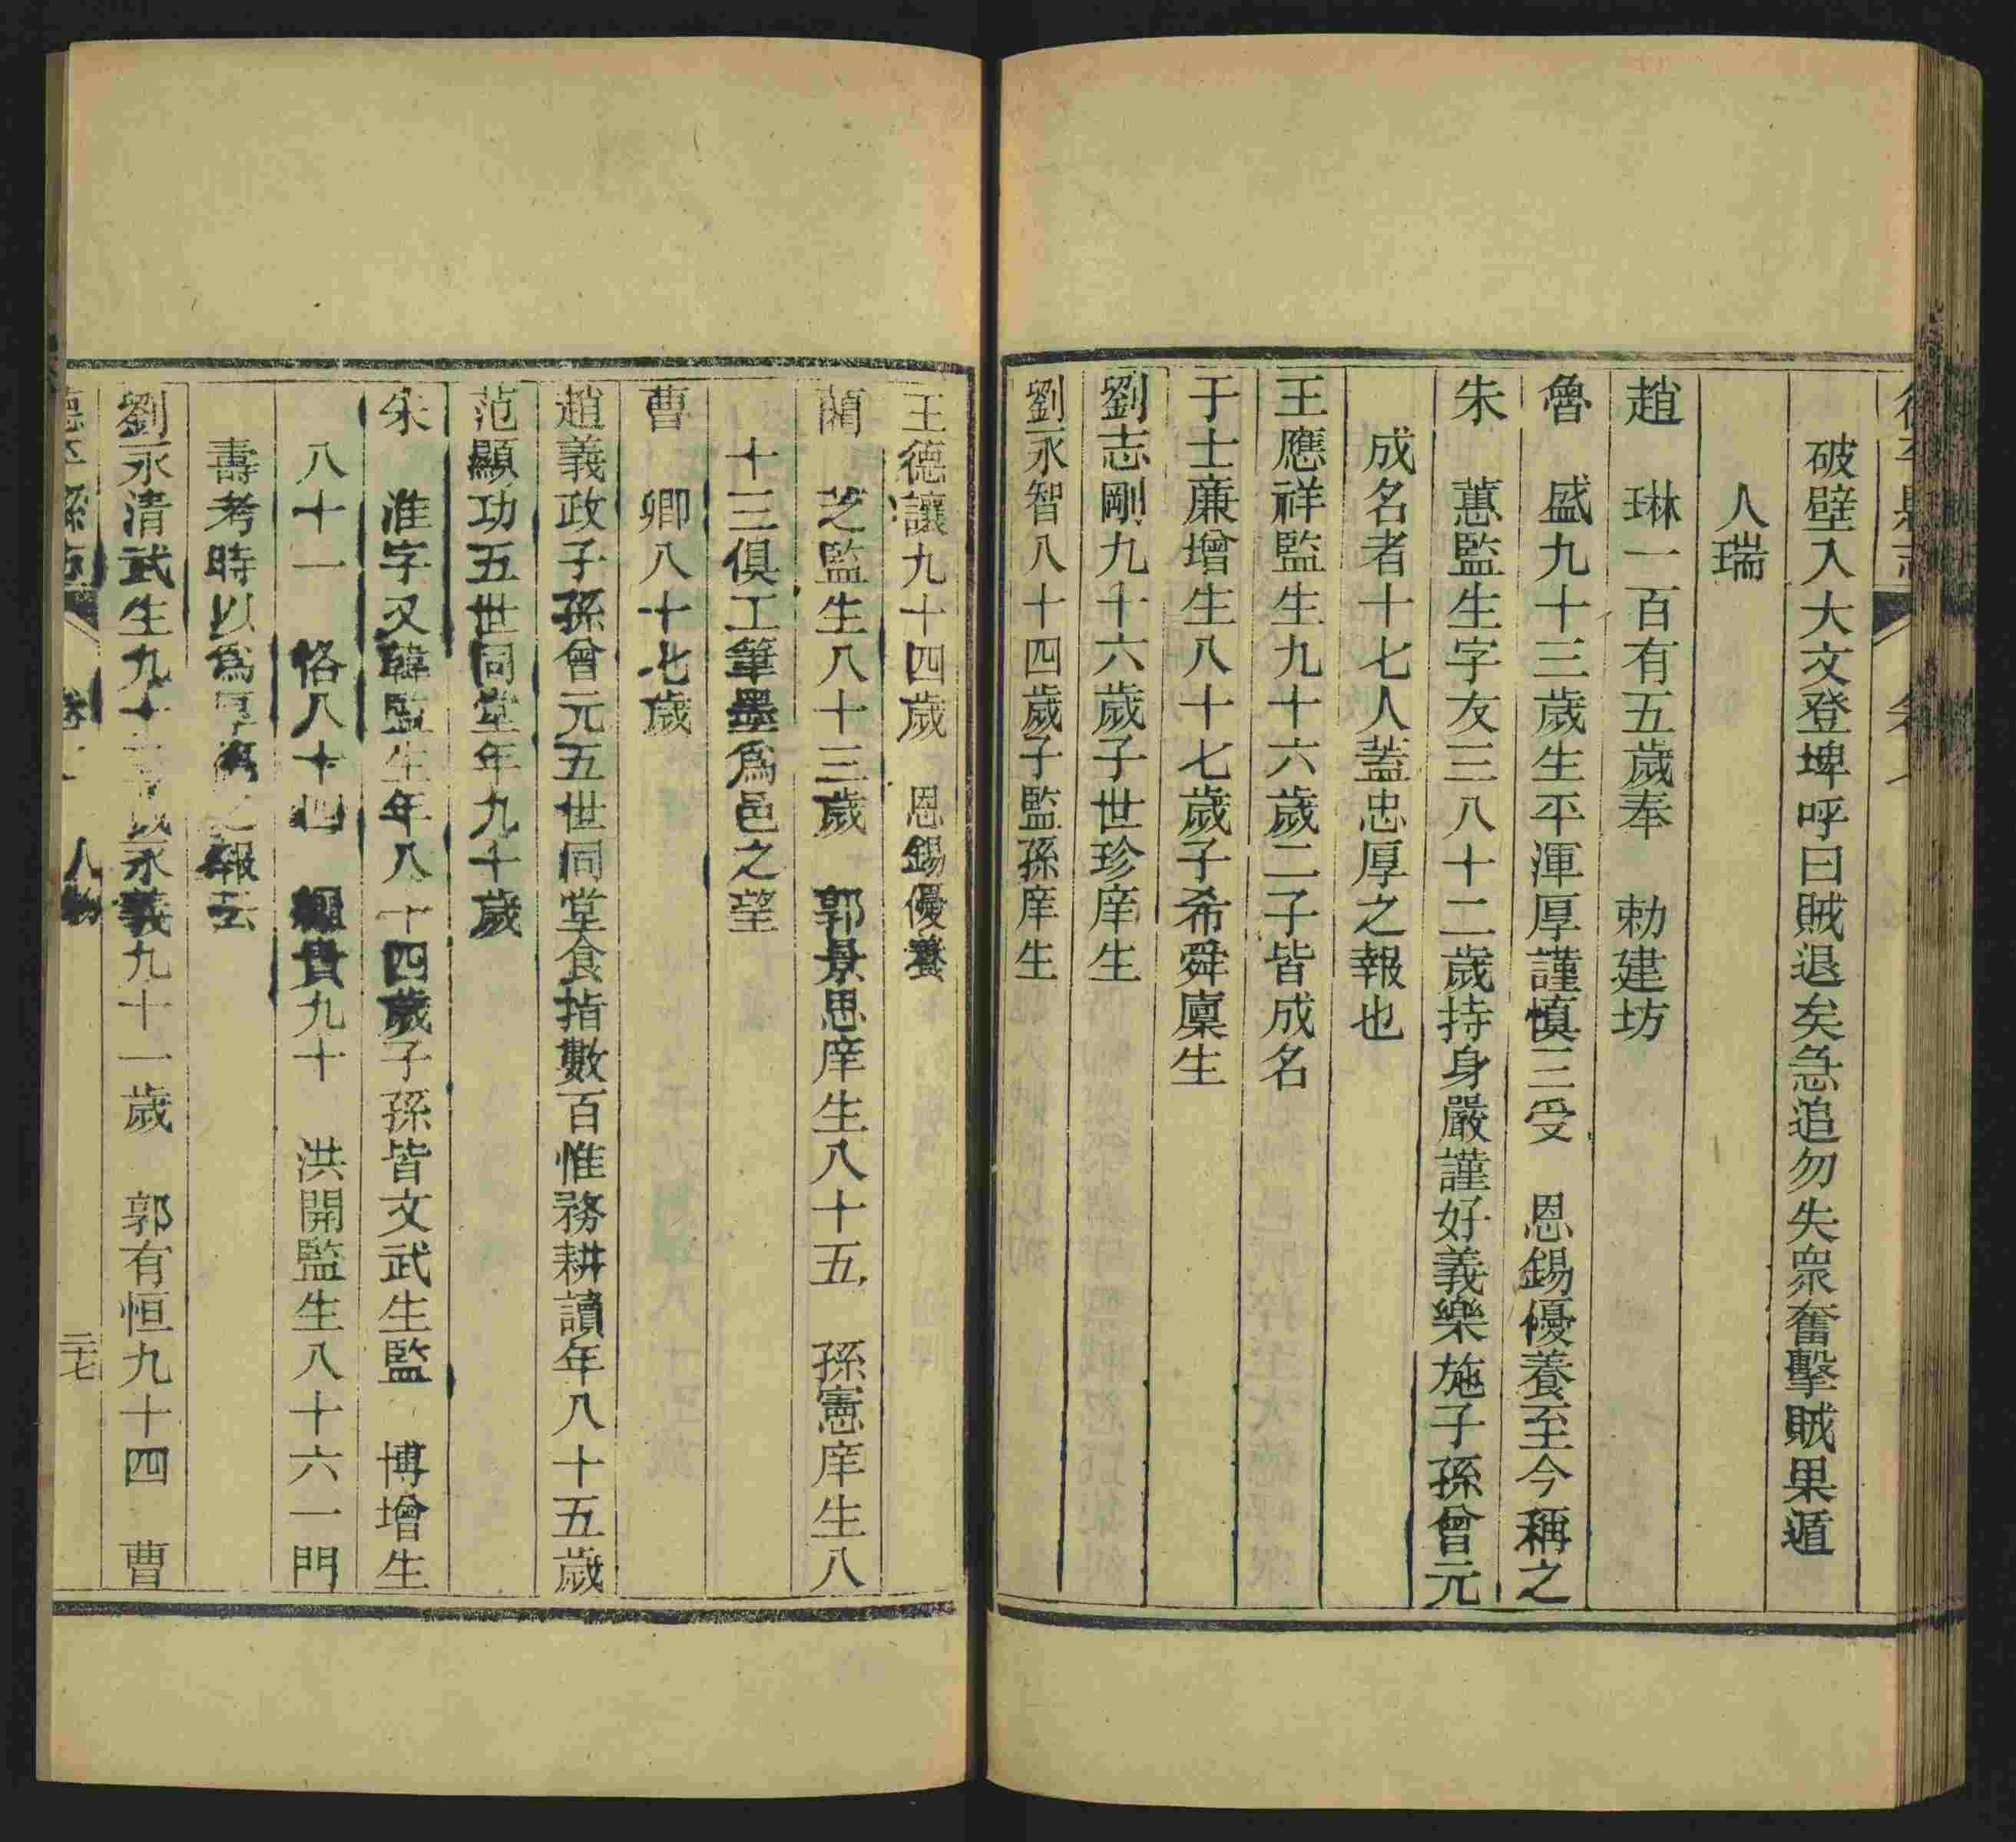 破壁入大文登埤呼曰賊退矣急追勿失衆奮擊賊果遁
人瑞
趙　琳一百有五歲奉　勅建坊
魯　盛九十三歲生平渾厚謹慎三受　恩錫優養至今稱之
朱　蕙監生字友三八十二歲持身嚴謹好義樂施子孫曾元
成名者十七人蓋忠厚之報也
王應祥監生九十六歲二子皆成名
于士廉增生八十七歲子希舜廩生
劉志剛九十六歲子世珍庠生
劉永智八十四歲子監孫庠生
王德讓九十四歲　恩錫優養
藺　芝監生八十三歲　郭景思庠生八十五　孫憲庠生八
十三俱工筆墨爲邑之望
曹　卿八十七歲
趙義政子孫曾元五世同堂食指數百惟務耕讀年八十五歲
范顯功五世同堂年九十歲
朱　淮字又韓監生年八十四歲子孫皆文武生監　博增生
八十一　恪八十四　貴九十　洪開監生八十六一門
壽考時以爲厚之報云
劉永清武生九十　永義九十一歲　郭有恒九十四　曹
德平縣志　卷　人物　二十七